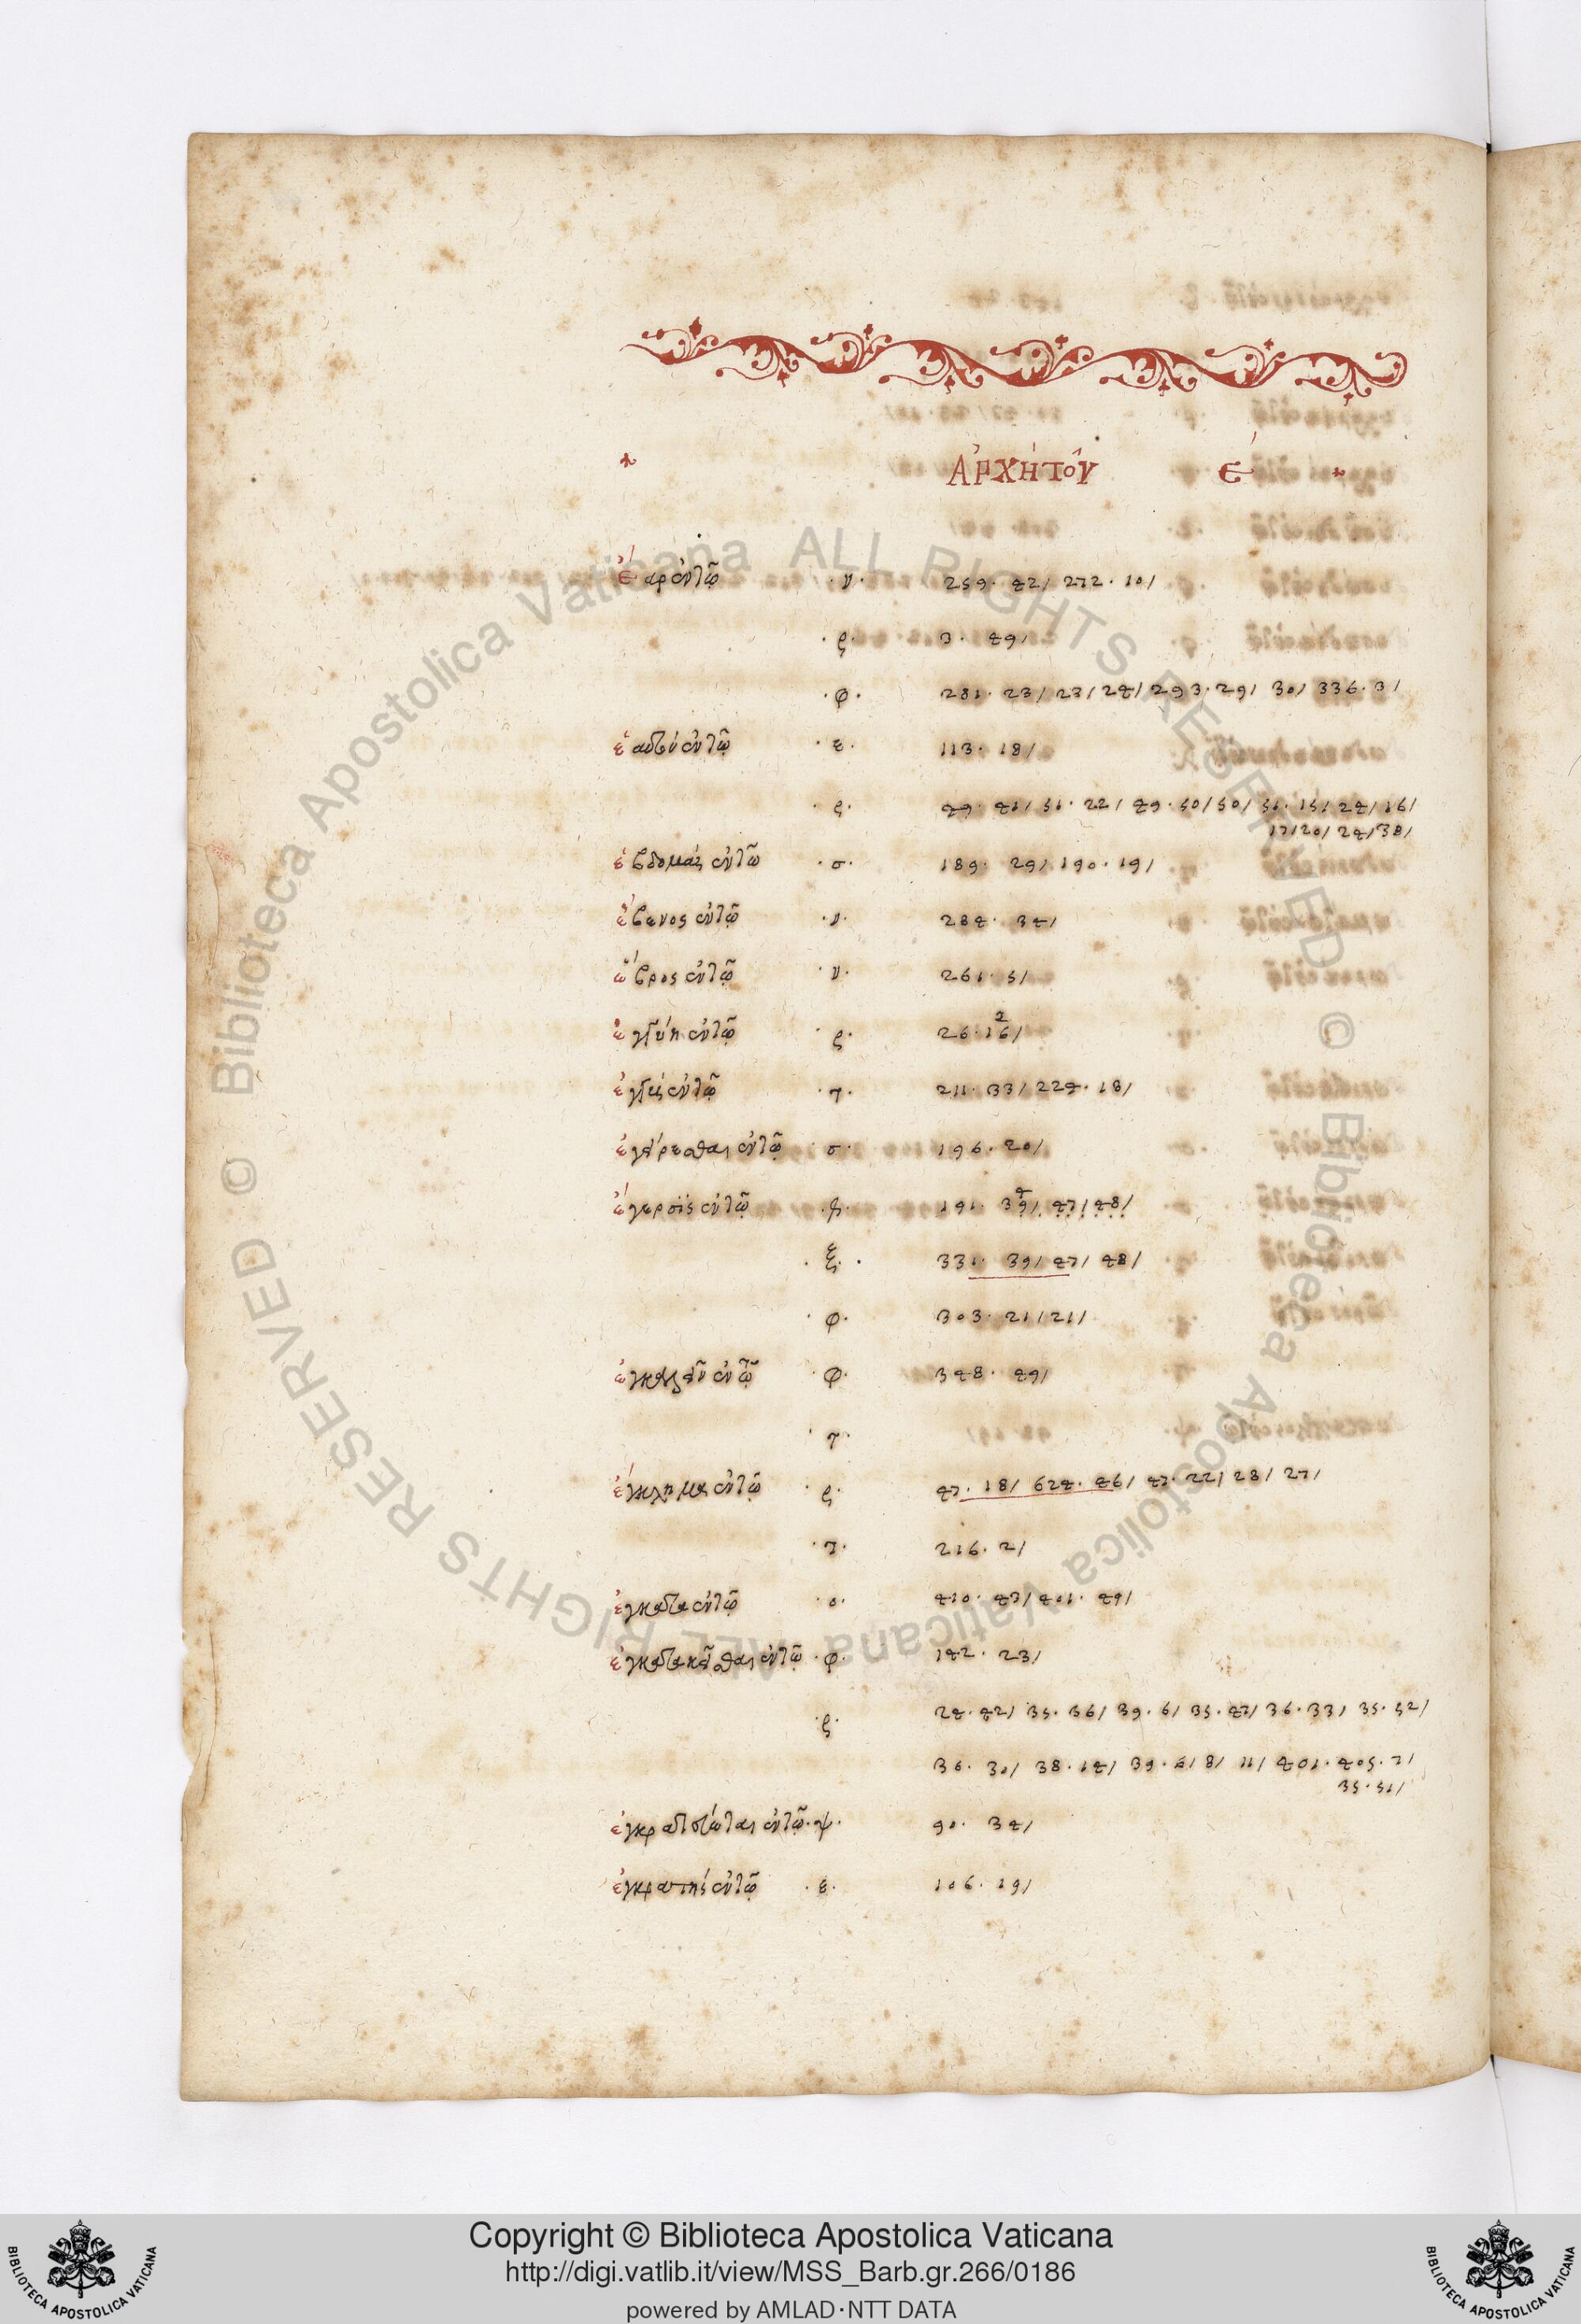 ἈΡΧΗ ΤΟΥ͂ Ε
ἔαρ ἐν τῷ ·ν· 259· 42/ 272· 10/
·ρ· 3· 49/
·φ· 281· 23/ 23/ 24/ 293· 29/ 30/ 336· 3/
ἑαυτὸν ἐν τῷ ·ε· 113· 18/
·ρ· 49· 41/ 51· 22/ 49· 50/ 50/ 51· 15/ 24/ 16/
17/ 20/ 24/ 38/
ἑβδομὰς ἐν τῷ ·σ· 189· 29/ 190· 19/
ἔβενος ἐν τῷ ·ν· 284· 34/
ἕβρος ἐν τῷ ·ν· 261· 5/
ἐγγύη ἐν τῷ ·ρ· 26· 16/
ἐγγὺς ἐν τῷ ·τ· 211· 33/ 224· 18/
ἐγείρεσθαι ἐν τῷ ·σ· 196· 20/
ἔγερσις ἐν τῷ 191· 39/ 47/ 48/
·ξ· 331· 39/ 47/ 48/
·φ· 303· 21/ 21/
ἐν τῷ ·φ· 348· 49/
·τ·
ἔγκλημα ἐν τῷ ·ρ· 47· 18/ 624· 46/ 47· 22/ 23/ 27/
·τ· 216· 2/
ἔγκατα ἐν τῷ ·ο· 410· 43/ 401· 49/
ἐγκατακεῖσθαι ἐν τῷ ·φ· 142· 23/
·ρ· 24· 42/ 35· 36/ 39· 6/ 35· 47/ 36· 33/ 35· 52/
36· 30/ 38· 14/ 39· 6/ 8/ 11/ 401· 405· 7/
35· 51/
ἐν τῷ ·ψ· 90· 34/
ἐγκρατὴς ἐν τῷ ·ε· 106· 19/
Copyright © Biblioteca Apostolica Vaticana
http://digi.vatlib.it/view/MSS_Barb.gr.266/0186
powered by AMLAD·NTT DATA
BIBLIOTECA APOSTOLICA VATICANA
BIBLIOTECA APOSTOLICA VATICANA
© Biblioteca Apostolica Vaticana ALL RIGHTS RESERVED
© Biblioteca Apostolica Vaticana ALL RIGHTS RESERVED